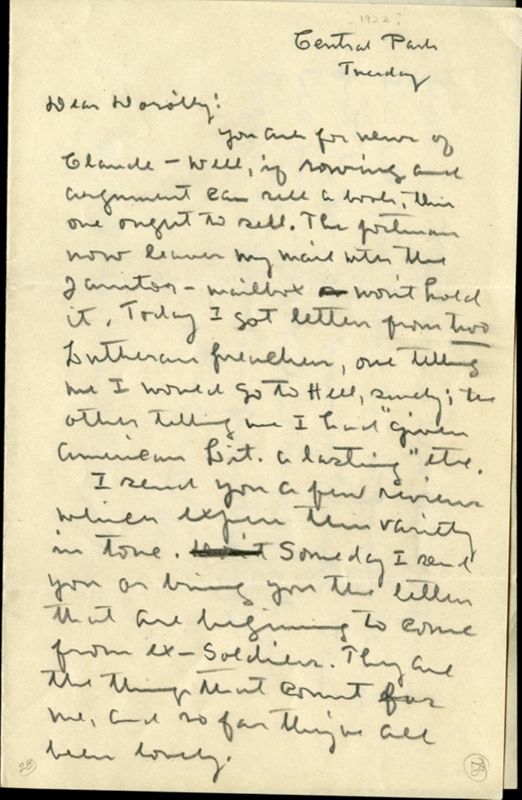 [1922]
Central Park
Tuesday
Dear Dorothy:
You ask for news of
Claude – Well, if rowing and
argument can sell a book, this
one ought to sell. The postman
now leaves my mail with the
Janitor – mailbox won't hold
it. Today I got letters from two
Lutheran preachers, one telling
me I would go to Hell, surely; the
other telling me I had "given
American Lit. a lasting" etc.
I send you a few reviews
which express this variety
in tone. Someday I send
you or bring you the letters
that are beginning to come
from ex-Soldiers. They are
the things that count for
me, and so far they've all
been lovely.
28
28